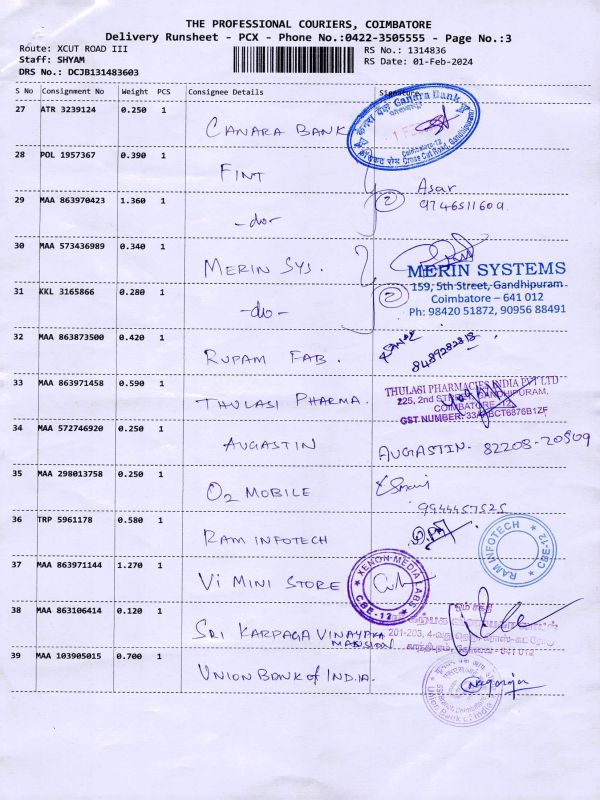 THE PROFESSIONAL COURIERS, COIMBATORE
Delivery Runsheet - PCX - Phone No.:0422-3505555 - Page No.:3
Route: XCUT ROAD III
RS No.: 1314836
Staff: SHYAM
RS Date: 01-Feb-2024
DRS No.: DCJB131483603
S No Consignment No Weight PCS Consignee Details Signature
27 ATR 3239124 0.250 1
CANARA BANK
Canara Bank
Coimbatore-12
Cross Cut Road, Gandhipuram
28 POL 1957367 0.390 1
FINT
Asar
29 MAA 863970423 1.360 1
2
9746511609
-do-
30 MAA 573436989 0.340 1
MERIN SYS.
MERIN SYSTEMS
159, 5th Street, Gandhipuram
31 KKL 3165866 0.280 1
2
Coimbatore – 641 012
-do-
Ph: 98420 51872, 90956 88491
32 MAA 863873500 0.420 1
RUPAM FAB.
8489282818
33 MAA 863971458 0.590 1
THULASI PHARMA.
THULASI PHARMACIES INDIA PVT LTD
225, 2nd STREET, GANDHIPURAM,
COIMBATORE-12
34 MAA 572746920 0.250 1
AUGASTIN
AUGASTIN. 82208-20809
35 MAA 298013758 0.250 1
O2 MOBILE
9944457525
36 TRP 5961178 0.580 1
RAM INFOTECH
RAM INFOTECH
CBE-12
37 MAA 863971144 1.270 1
VI MINI STORE
XENON MEDIA LABS
CBE-12
38 MAA 863106414 0.120 1
SRI KARPAGA VINAYAKA
MANSION
ஓம் சக்தி
39 MAA 103905015 0.700 1
UNION BANK of INDIA.
Union Bank of India
Nagaraja